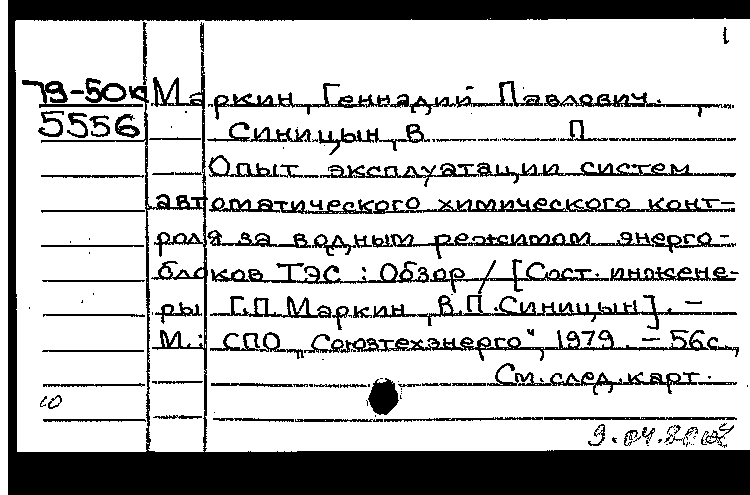 1
79-50к Маркин, Геннадий Павлович.
5556 Синицын, В П
Опыт эксплуатации систем
автоматического химического конт-
роля за водным режимом энерго-
блоков ТЭС : Обзор / [Сост. инжене-
ры Г.П. Маркин, В.П. Синицын]. –
М.: СПО „Союзтехэнерго", 1979. – 56с.,
См. след. карт.
10
9.04.80